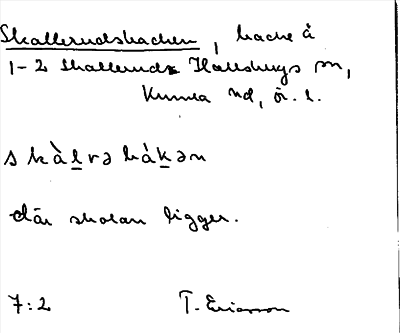 Skallerudsbacken, backe å
1-2 Skallerud Hallsbergs sn,
Kumla hd, ör. l.
skàlrəbàkən
där skolan ligger.
7:2 T. Ericsson